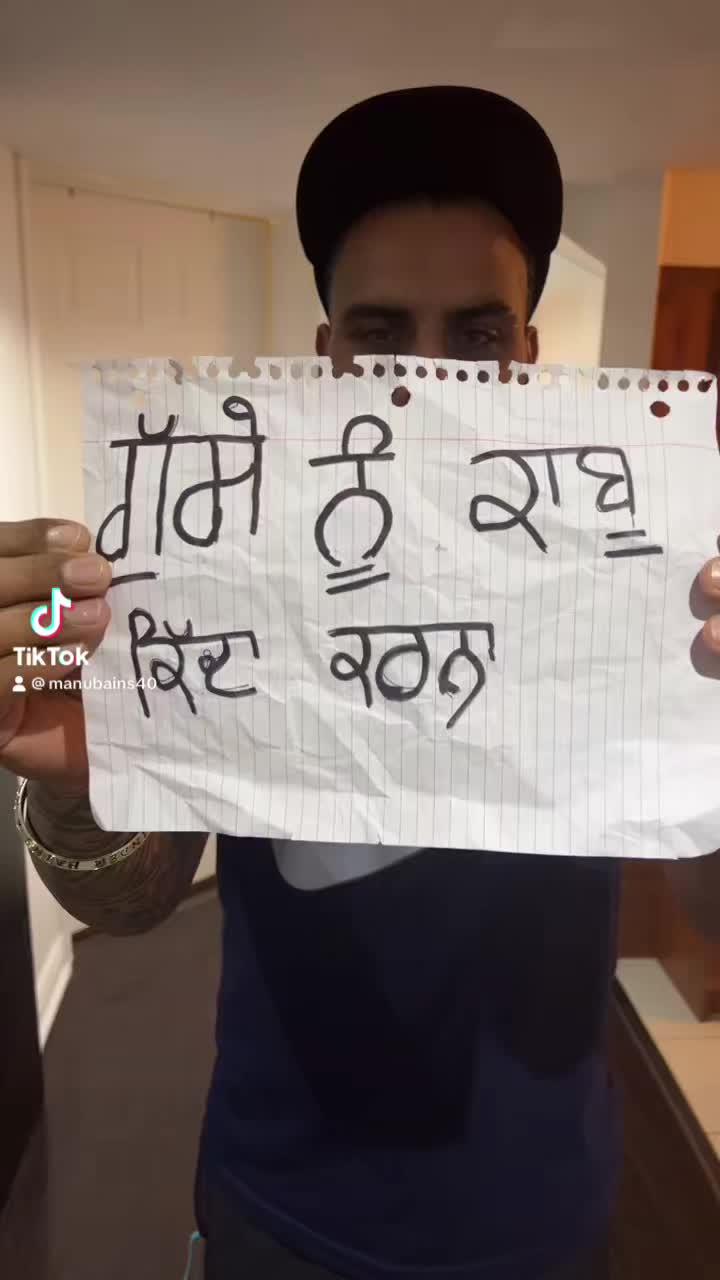 ਗੁੱਸੇ ਨੂੰ ਕਾਬੂ
ਕਿੱਦਾ ਕਰਨਾ
TikTok
@manubains40